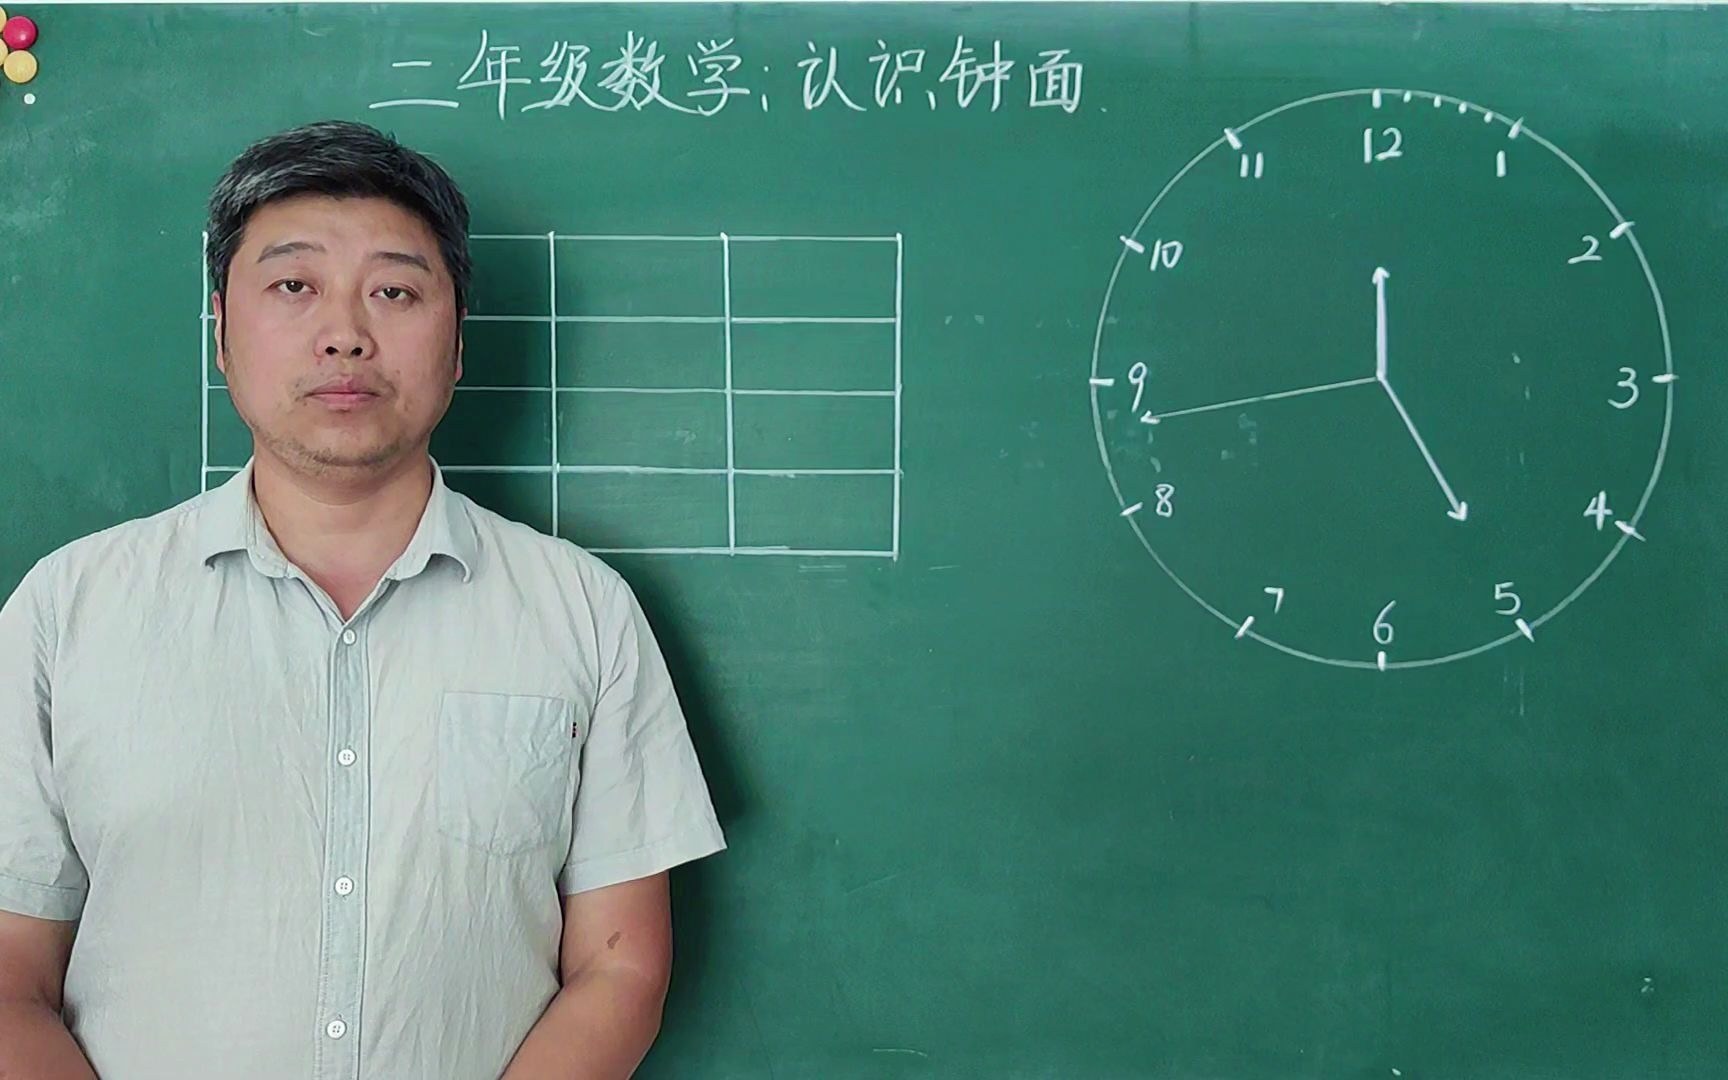 二年级数学:认识钟面
12
11
1
10
2
9
3
8
4
7
5
6